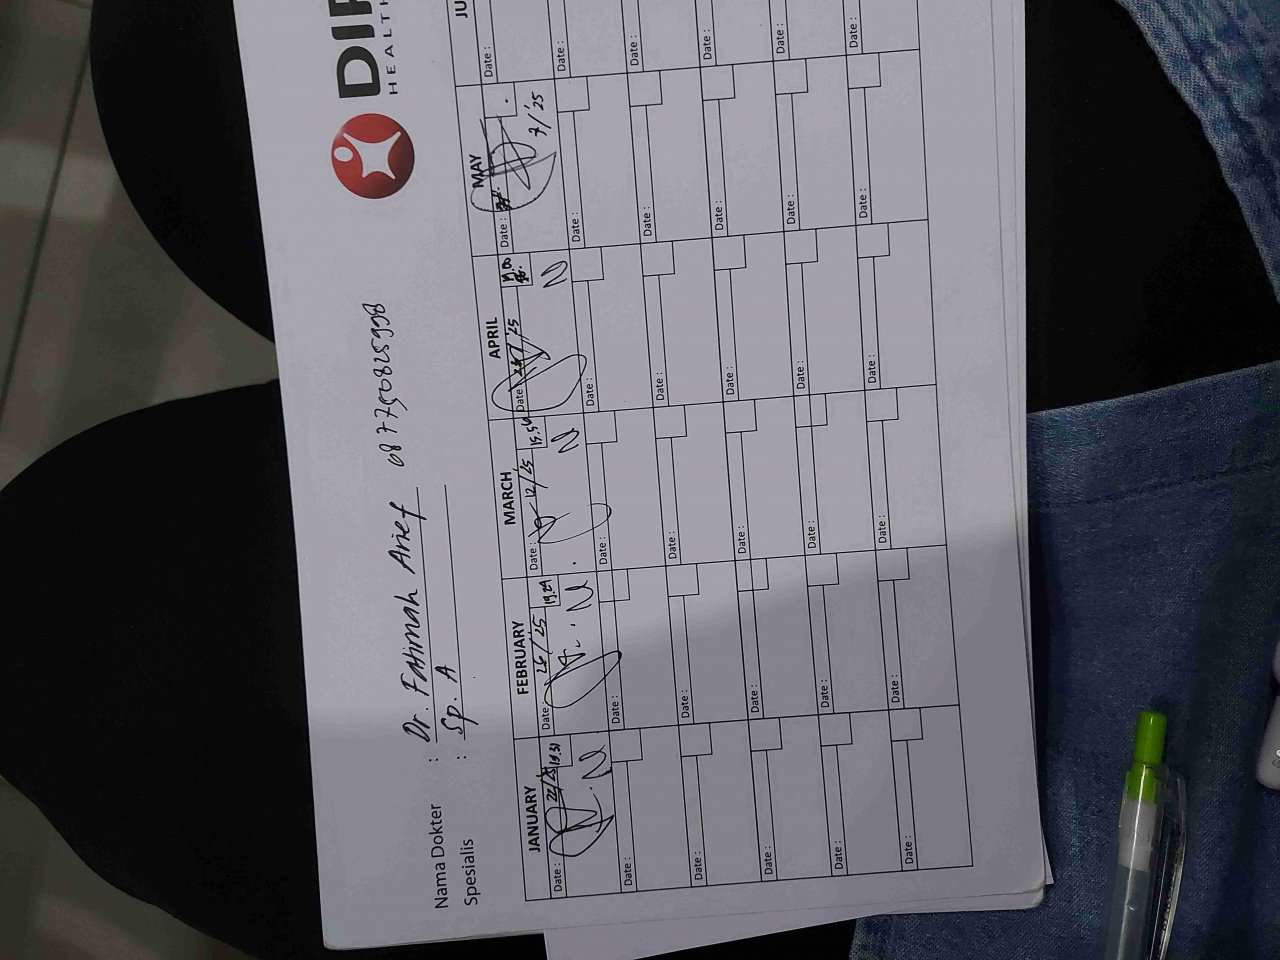 HEALTH
Nama Dokter : Dr. Fatimah Arief 087750825998
Spesialis : Sp. A
JANUARY FEBRUARY MARCH APRIL MAY
Date : 22/25 19.31 Date : 26/25 19.29 Date : 12/25 15.56 Date /25 Date : 7/25 Date :
Date : Date : Date : Date : Date : Date :
Date : Date : Date : Date : Date : Date :
Date : Date : Date : Date : Date : Date :
Date : Date : Date : Date : Date : Date :
Date : Date : Date : Date : Date : Date :